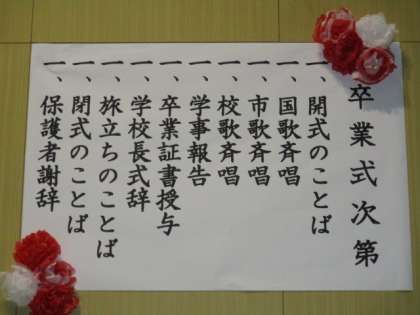 卒業式次第
一、開式のことば
一、国歌斉唱
一、市歌斉唱
一、校歌斉唱
一、学事報告
一、卒業証書授与
一、学校長式辞
一、旅立ちのことば
一、閉式のことば
一、保護者謝辞